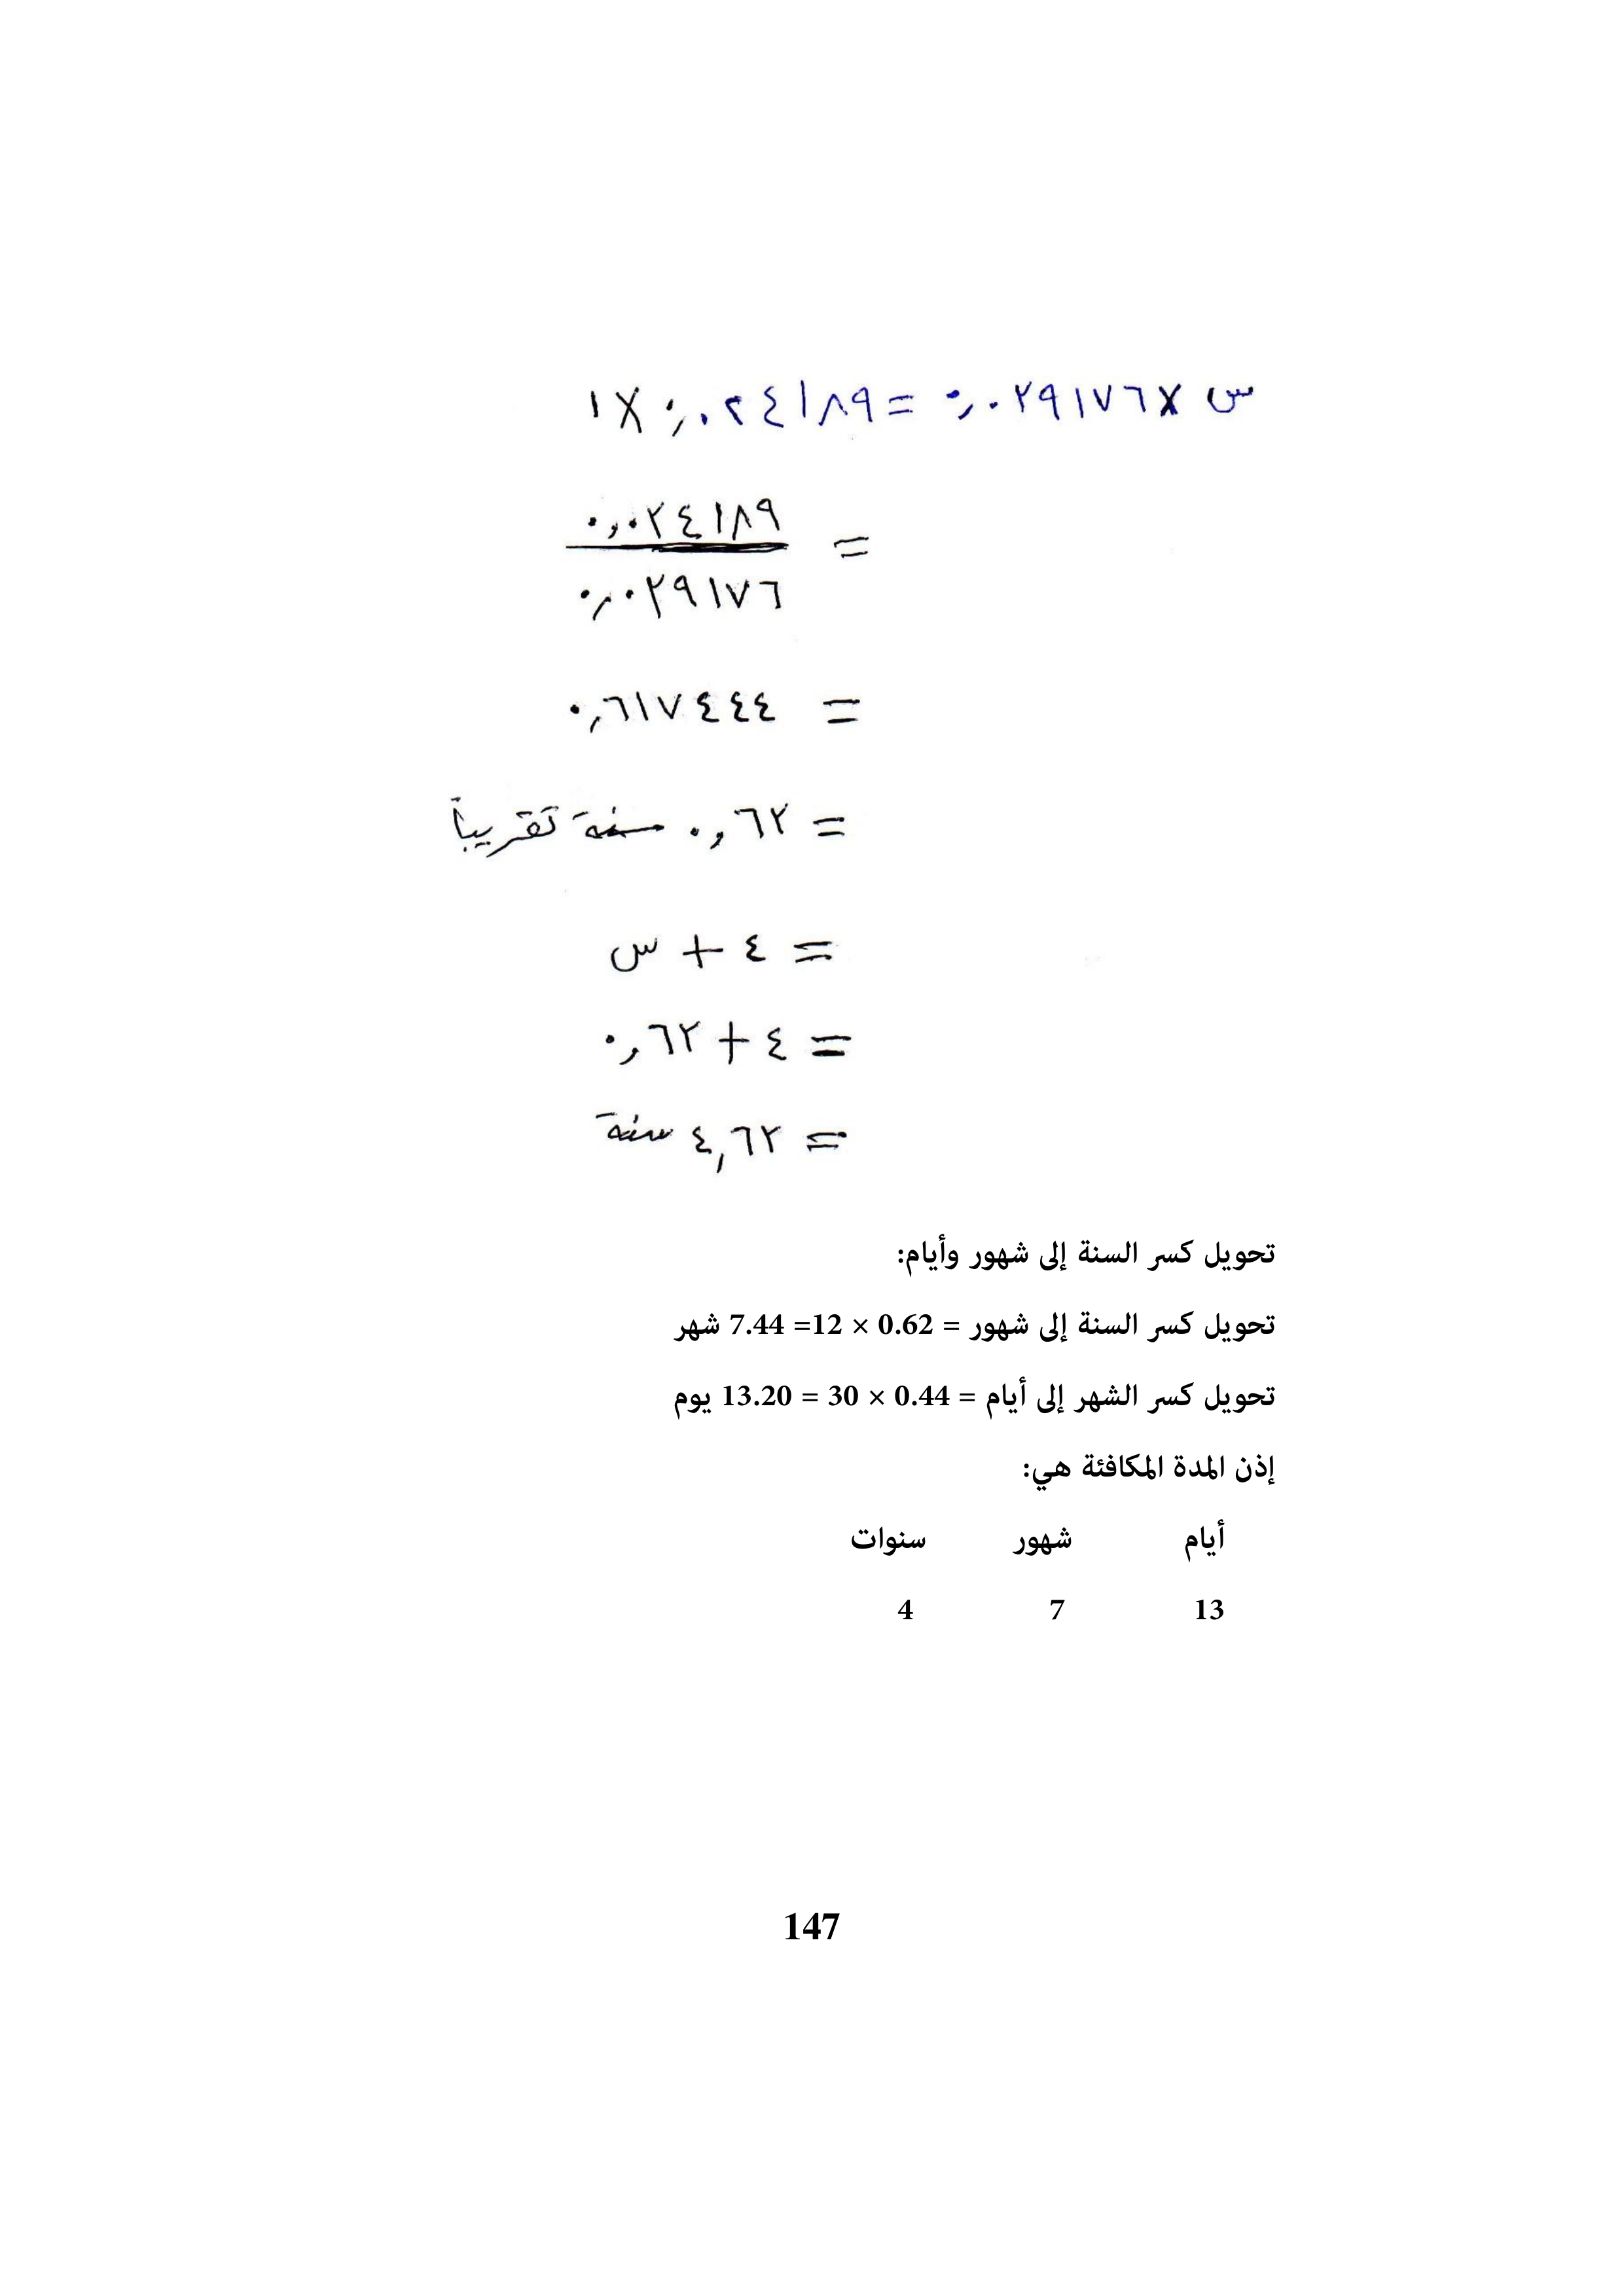 س × ٠,٠٢٩١٧٦ = ٠,٠٢٤١٨٩ × ١
= ٠,٠٢٤١٨٩
٠,٠٢٩١٧٦
= ٠,٦١٧٤٤٤
= ٠,٦٢ سنة تقريباً
= ٤ + س
= ٤ + ٠,٦٢
= ٤,٦٢ سنة
تحويل كسر السنة إلى شهور وأيام:
تحويل كسر السنة إلى شهور = 0.62 × 12= 7.44 شهر
تحويل كسر الشهر إلى أيام = 0.44 × 30 = 13.20 يوم
إذن المدة المكافئة هي:
أيام شهور سنوات
13 7 4
147